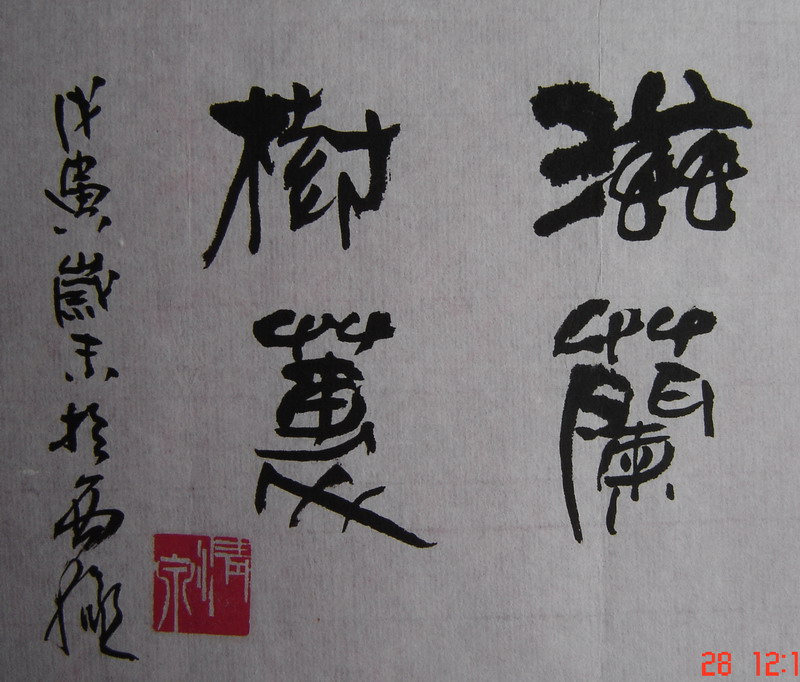 滋蘭
樹蕙
戊寅歲末於西極
清泉
28 12:1